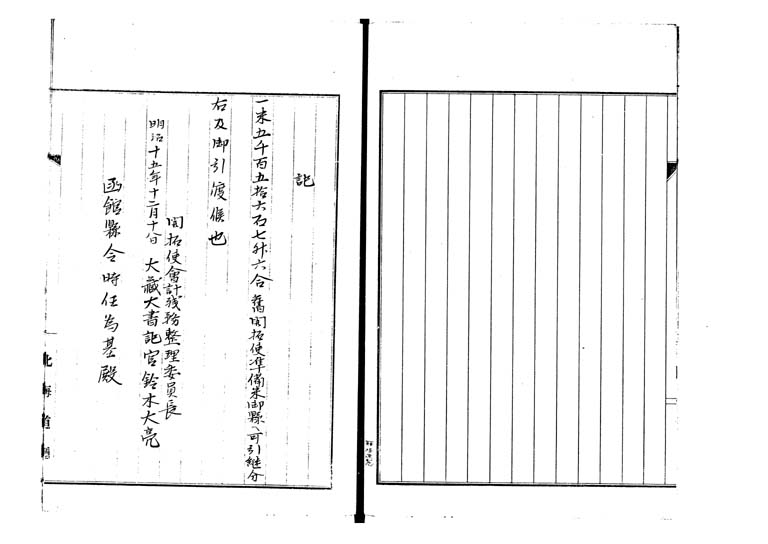 記
一米五千百五拾六石七升六合 舊開拓使準備米御縣ヘ可引継分
右及御引渡候也
開拓使會計残務整理委員長
明治十五年十二月十日 大藏大書記官鈴木大亮
函館縣令時任為基殿
北海道廳